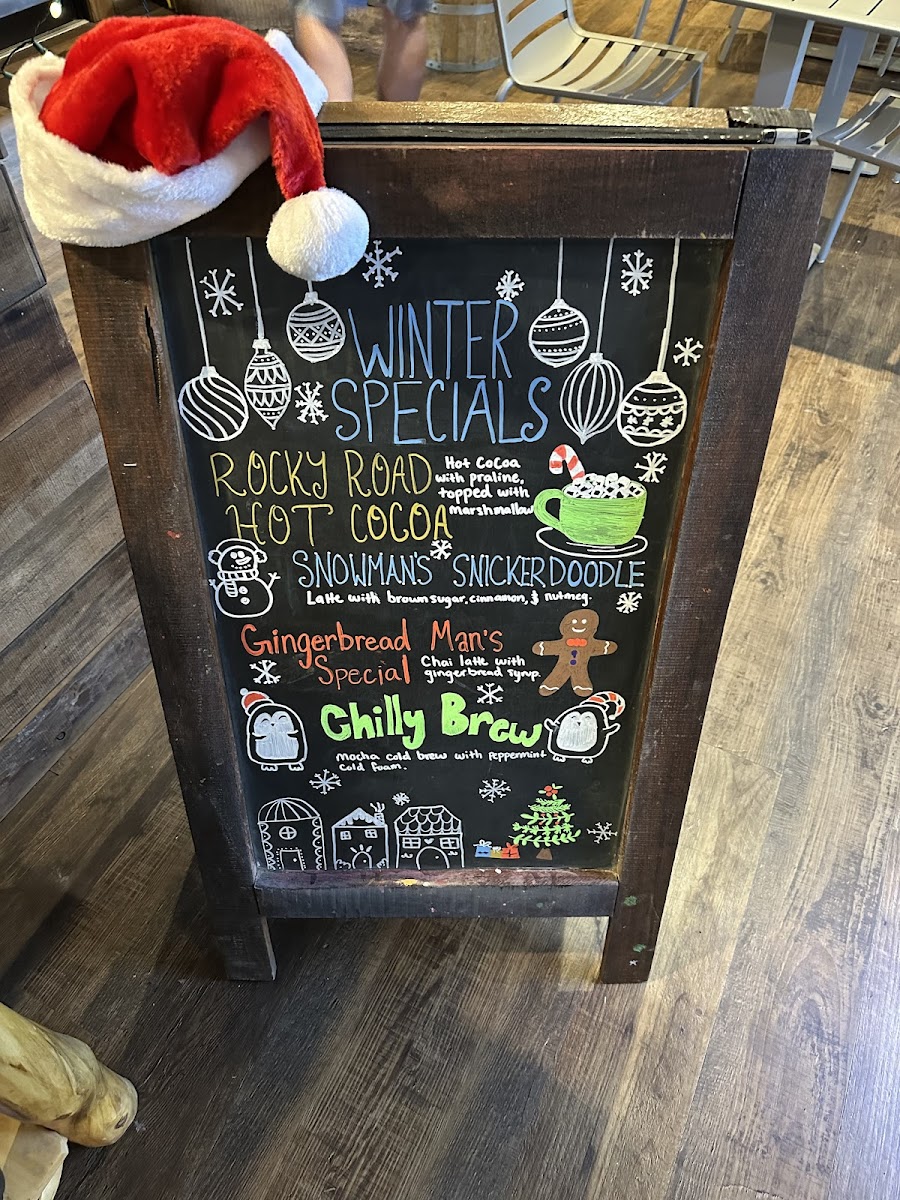 WINTER
SPECIALS
ROCKY ROAD
HOT COCOA
Hot Cocoa
with praline,
topped with
marshmallow
SNOWMAN'S SNICKERDOODLE
Latte with brown sugar, cinnamon, & nutmeg.
Gingerbread Man's
Special
Chai latte with
gingerbread syrup.
Chilly Brew
mocha cold brew with peppermint
cold foam.